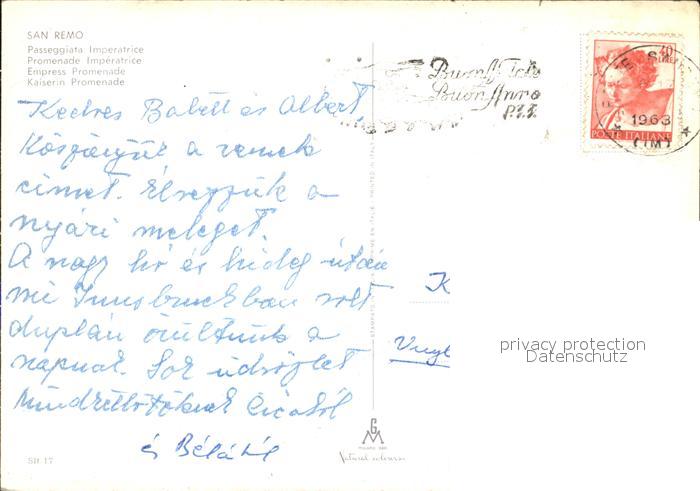 SAN REMO
Passeggiata Imperatrice
Promenade Impératrice
Empress Promenade
Kaiserin Promenade
Buone Feste
Buon Anno
P.T.T.
40
LIRE
1963
(IM)
POSTE ITALIANE
Kedves Babett és Albert,
Köszönjük a remek
címet. Élvezzük a
nyári meleget.
A nagy hó és hideg után
mi Innsbruckban volt
duplán örültünk a
napnak. Sok üdvözlet
mindkettőtöknek Cicától
és Bélától
K
privacy protection
Datenschutz
GM
SR 17